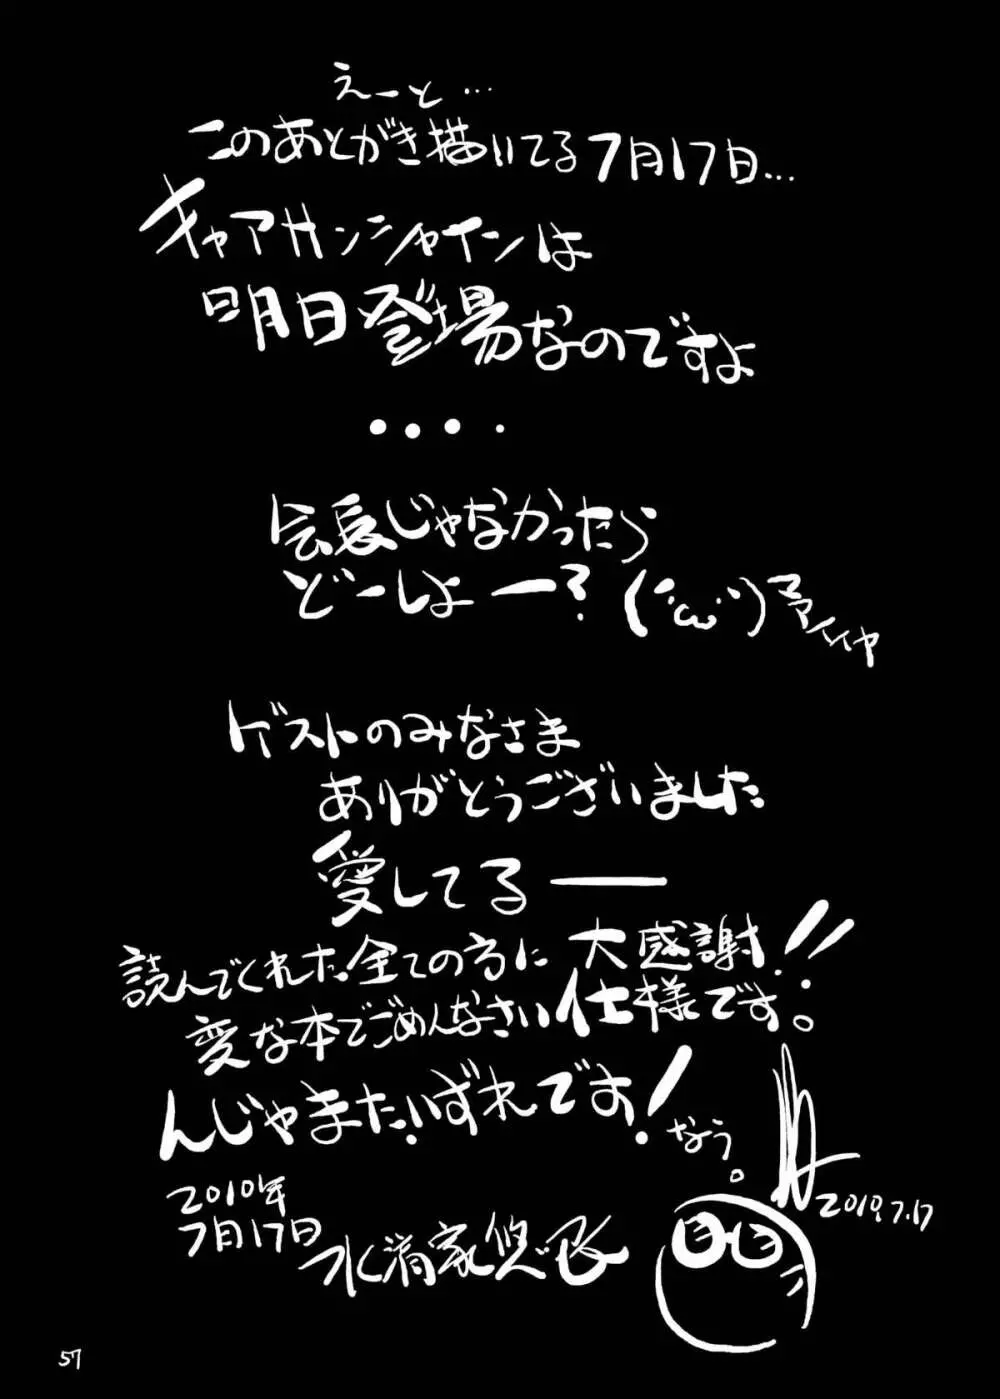 えーと…
このあとがき描いてる7月17日…
キャアサンシャインは
明日登場なのですよ
・・・・
会長じゃなかったら
どーしよー？(´･ω･`)
ゲストのみなさま
ありがとうございました
愛してるー
読んでくれた全ての方に大感謝!!
変な本でごめんなさい仕様です。
んじゃまたいずれです！なう。
2010年
7月17日
2010.7.17
57